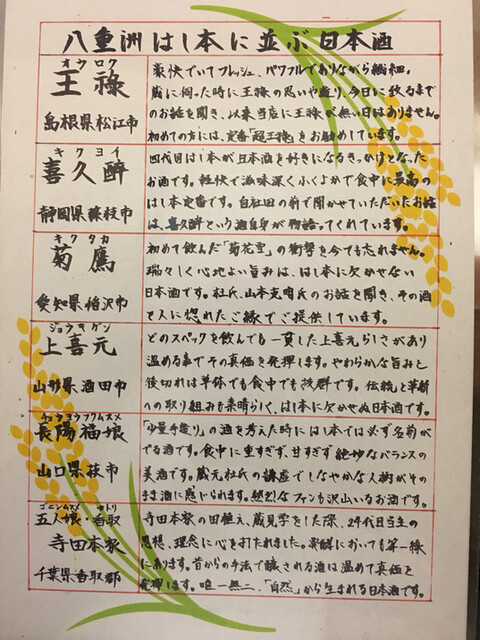 八重洲 はし本に並ぶ日本酒
オウロク
王祿
島根県松江市
豪快でいてフレッシュ、パワフルでありながら繊細。
蔵に伺った時に王祿の思いや造り、今日に至るまで
のお話を聞き、以来当店に王祿が無い日はありません。
初めての方には、定番「超王祿」をお勧めしています。
キクヨイ
喜久酔
静岡県藤枝市
四代目はし本が日本酒を好きになるきっかけとなった
お酒です。軽快で滋味深くふくよかで食中に最高の
はし本定番です。自社田の前で聞かせていただいたお話
は、喜久酔という酒自身が物語ってくれています。
キクタカ
菊鷹
愛知県稲沢市
初めて飲んだ「菊花雪」の衝撃を今でも忘れません。
瑞々しく心地よい旨みは、はし本に欠かせない
日本酒です。杜氏、山本克明氏のお話を聞き、その酒
と人に惚れたご縁でご提供しています。
ジョウキゲン
上喜元
山形県酒田市
どのスペックを飲んでも一貫した上喜元らしさがあり
温める事でその真価を発揮します。やわらかな旨みと
後切れは単体でも食中でも抜群です。伝統と革新
への取り組みも素晴らしく、はし本に欠かせぬ日本酒です。
チョウヨウフクムスメ
長陽福娘
山口県萩市
「少量手造り」の酒を考えた時にはし本では必ず名前が
でる酒です。食中に重すぎず、甘すぎず絶妙なバランスの
美酒です。蔵元杜氏の謙虚でしなやかな人柄がその
まま酒に感じられます。熱烈なファンも沢山いるお酒です。
ゴニンムスメ カトリ
五人娘・香取
寺田本家
千葉県香取郡
寺田本家の田植え、蔵見学をした際、24代目当主の
思想、理念に心を打たれました。発酵においても第一線
にあります。昔からの手法で醸される酒は温めて真価を
発揮します。唯一無二、「自然」から生まれる日本酒です。